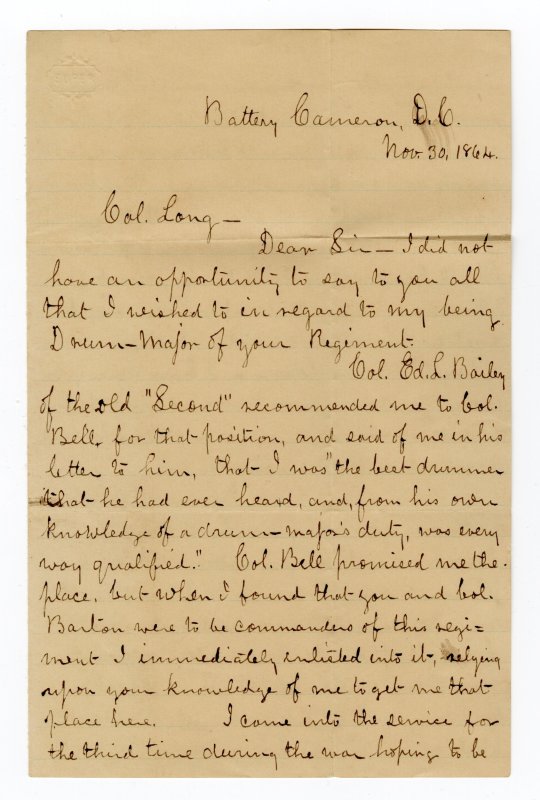 Battery Cameron, D.C.
Nov. 30, 1864.
Col. Long—
Dear Sir—I did not
have an opportunity to say to you all
that I wished to in regard to my being
Drum-Major of your Regiment.
Col. Ed. L. Bailey
of the old "Second" recommended me to Col.
Bell, for that position, and said of me in his
letter to him, that I was "the best drummer
that he had ever heard, and, from his own
knowledge of a drum-major's duty, was every
way qualified." Col. Bell promised me the
place, but when I found that you and Col.
Barton were to be commanders of this regi=
ment I immediately enlisted into it, relying
upon your knowledge of me to get me that
place here. I came into the service for
the third time during the war hoping to be